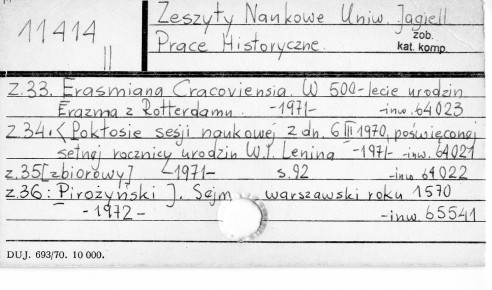 11414
II
Zeszyty Naukowe Uniw. Jagiell.
Prace Historyczne.
zob.
kat. komp.
z.33. Erasmiana Cracoviensia. W 500-lecie urodzin
Erazma z Rotterdamu. -1971- -inw. 64023
z.34. < Pokłosie sesji naukowej z dn. 6 III 1970, poświęconej
setnej rocznicy urodzin W.I. Lenina -1971- -inw. 64021
z.35 [zbiorowy] -1971- s.92 -inw. 64022
z.36: Pirożyński J. Sejm warszawski roku 1570
-1972- -inw. 65541
DUJ. 693/70. 10 000.